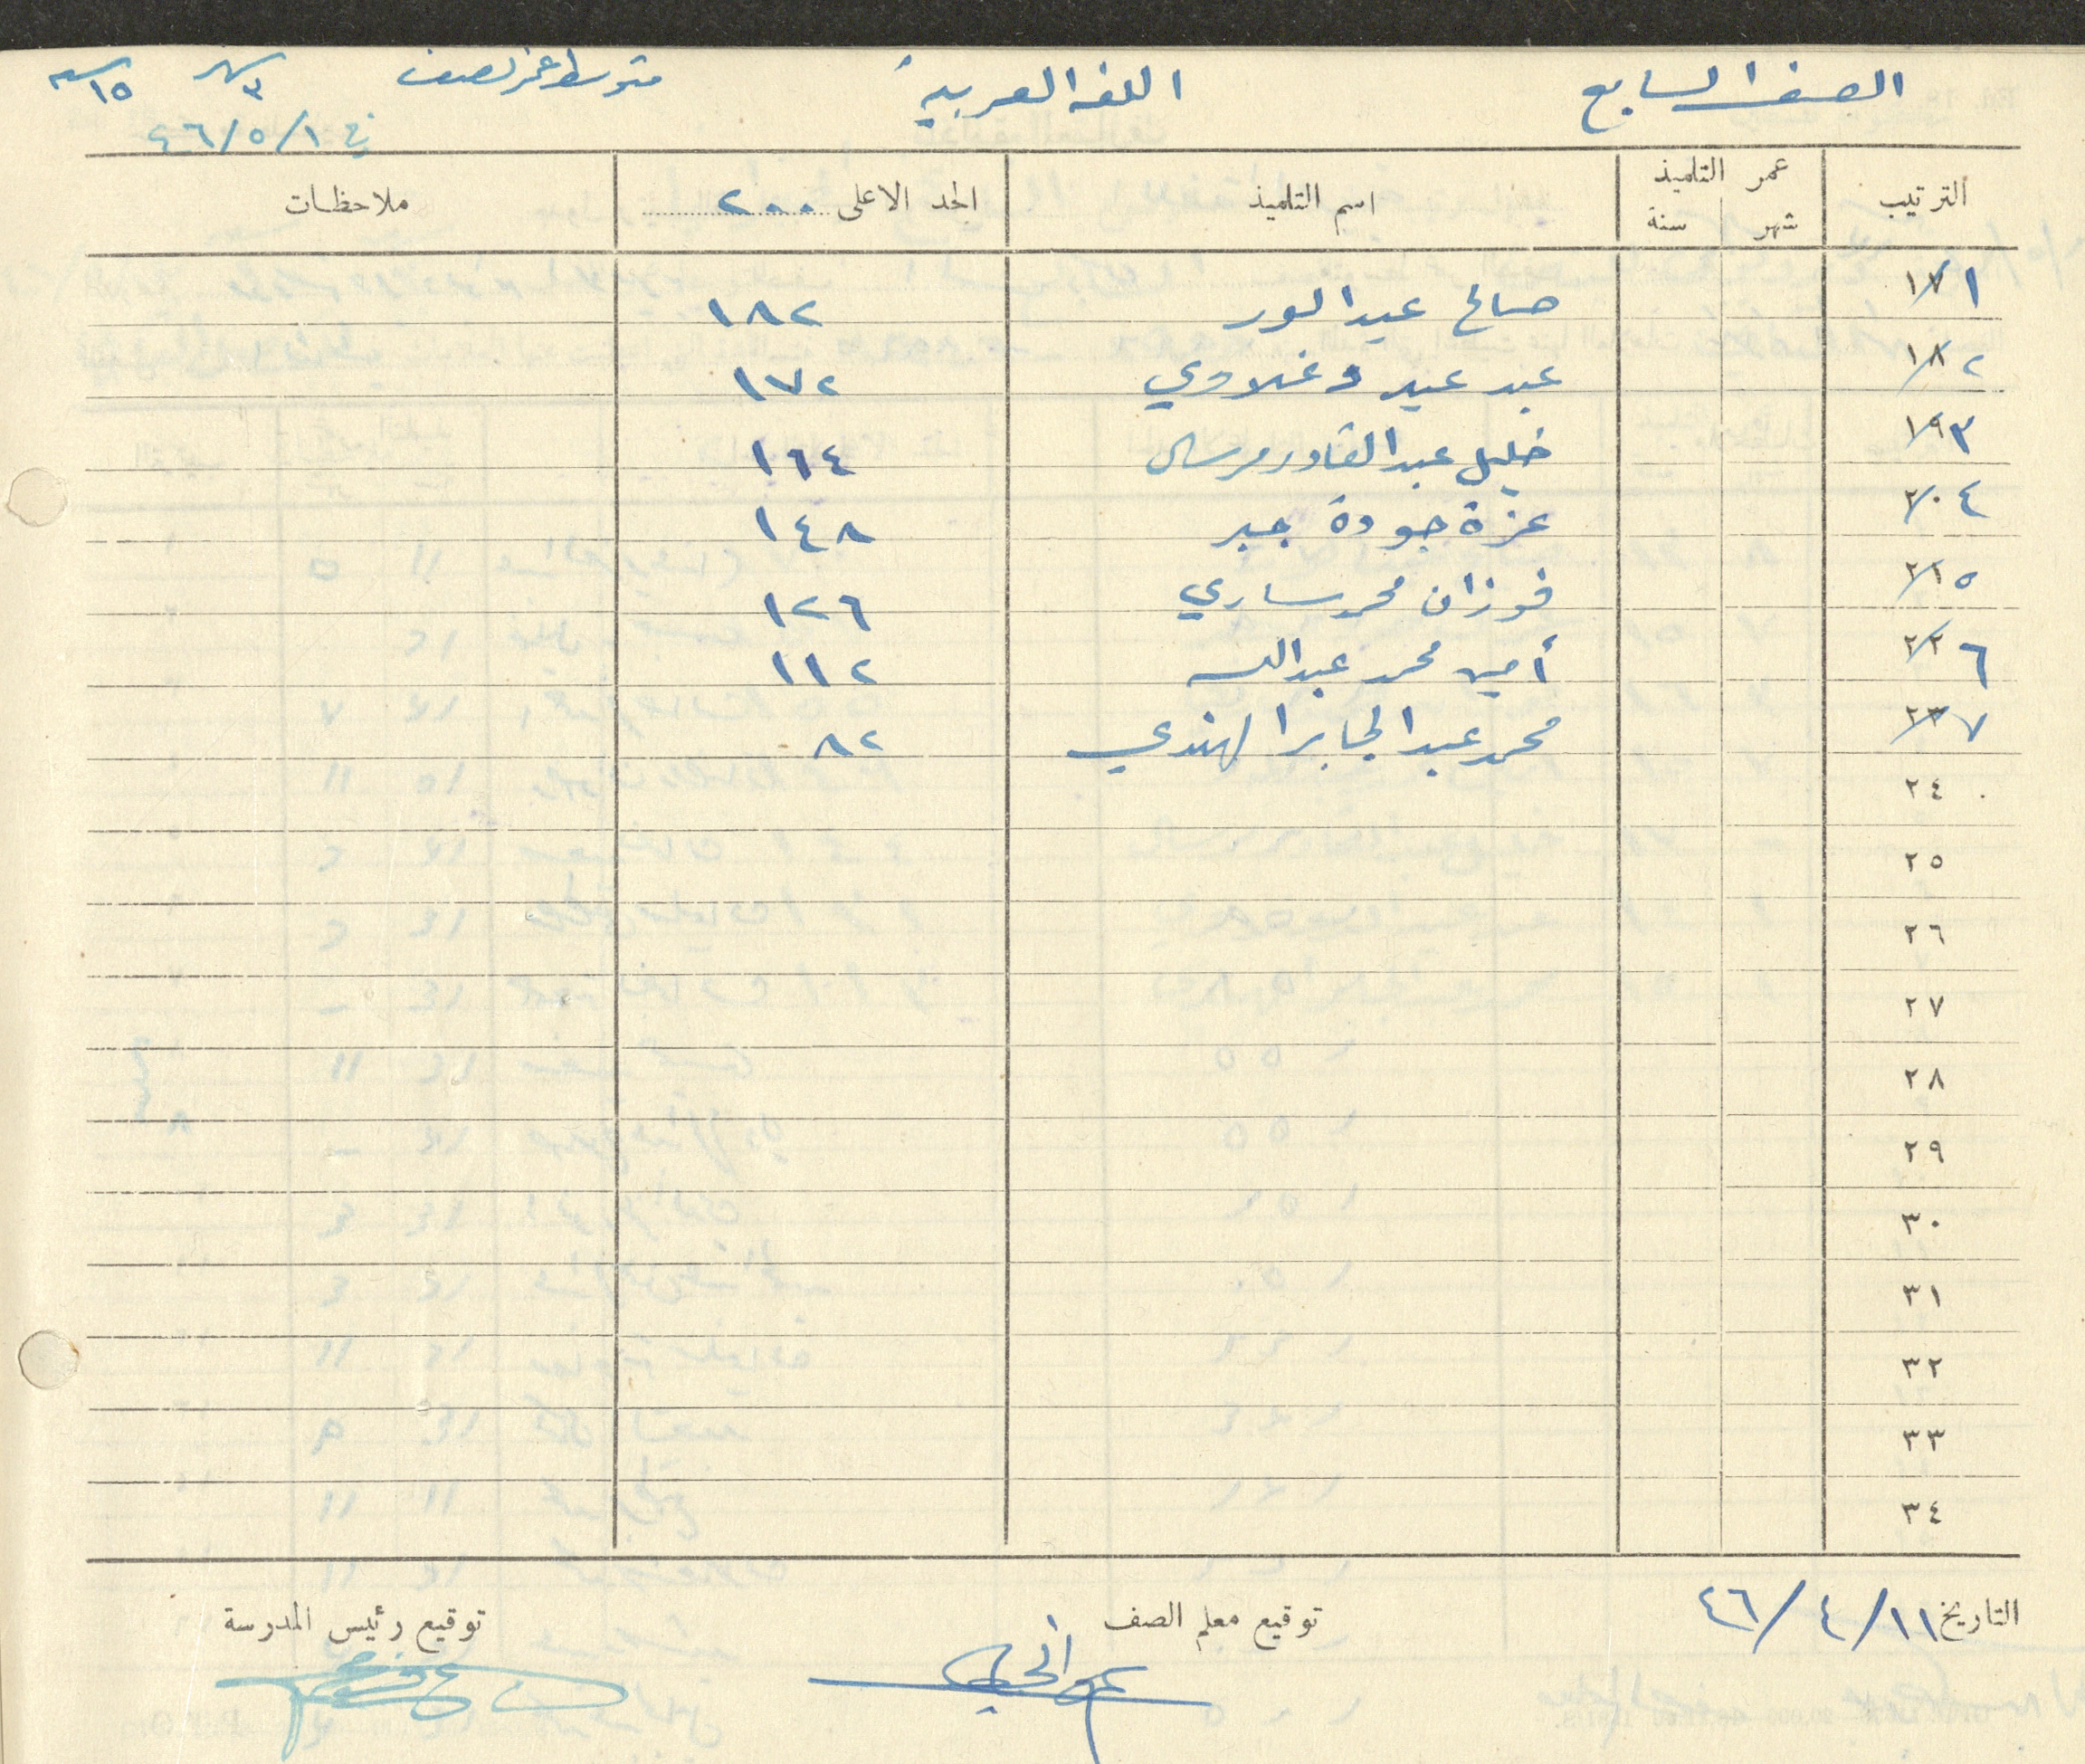 الصف السابع اللغة العربية متوسط عمر الصف ٣ شهر ١٥ سنة
في ١/٥/٤٦
الترتيب عمر التلميذ شهر سنة اسم التلميذ الحد الاعلى ٢٠٠ ملاحظات
١٧ ١ صالح عبد النور ١٨٢
١٨ ٢ عبد عيد دغلاوي ١٧٢
١٩ ٣ خليل عبد القادر مرسال ١٦٤
٢٠ ٤ عزة جودة جبر ١٤٨
٢١ ٥ فوزان محمد ساري ١٢٦
٢٢ ٦ أمين محمد عبدالله ١١٢
٢٣ ٧ محمد عبد الجابر الهندي ٨٢
٢٤
٢٥
٢٦
٢٧
٢٨
٢٩
٣٠
٣١
٣٢
٣٣
٣٤
التاريخ ١١/٤/٤٦ توقيع معلم الصف توقيع رئيس المدرسة